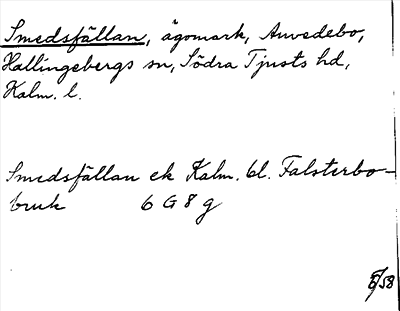 Smedsfällan, ägomark, Anvedebo,
Hallingebergs sn, Södra Tjusts hd,
Kalm. l.
Smedsfällan ek Kalm. bl. Falsterbo-
bruk 6 G 8 g
/58